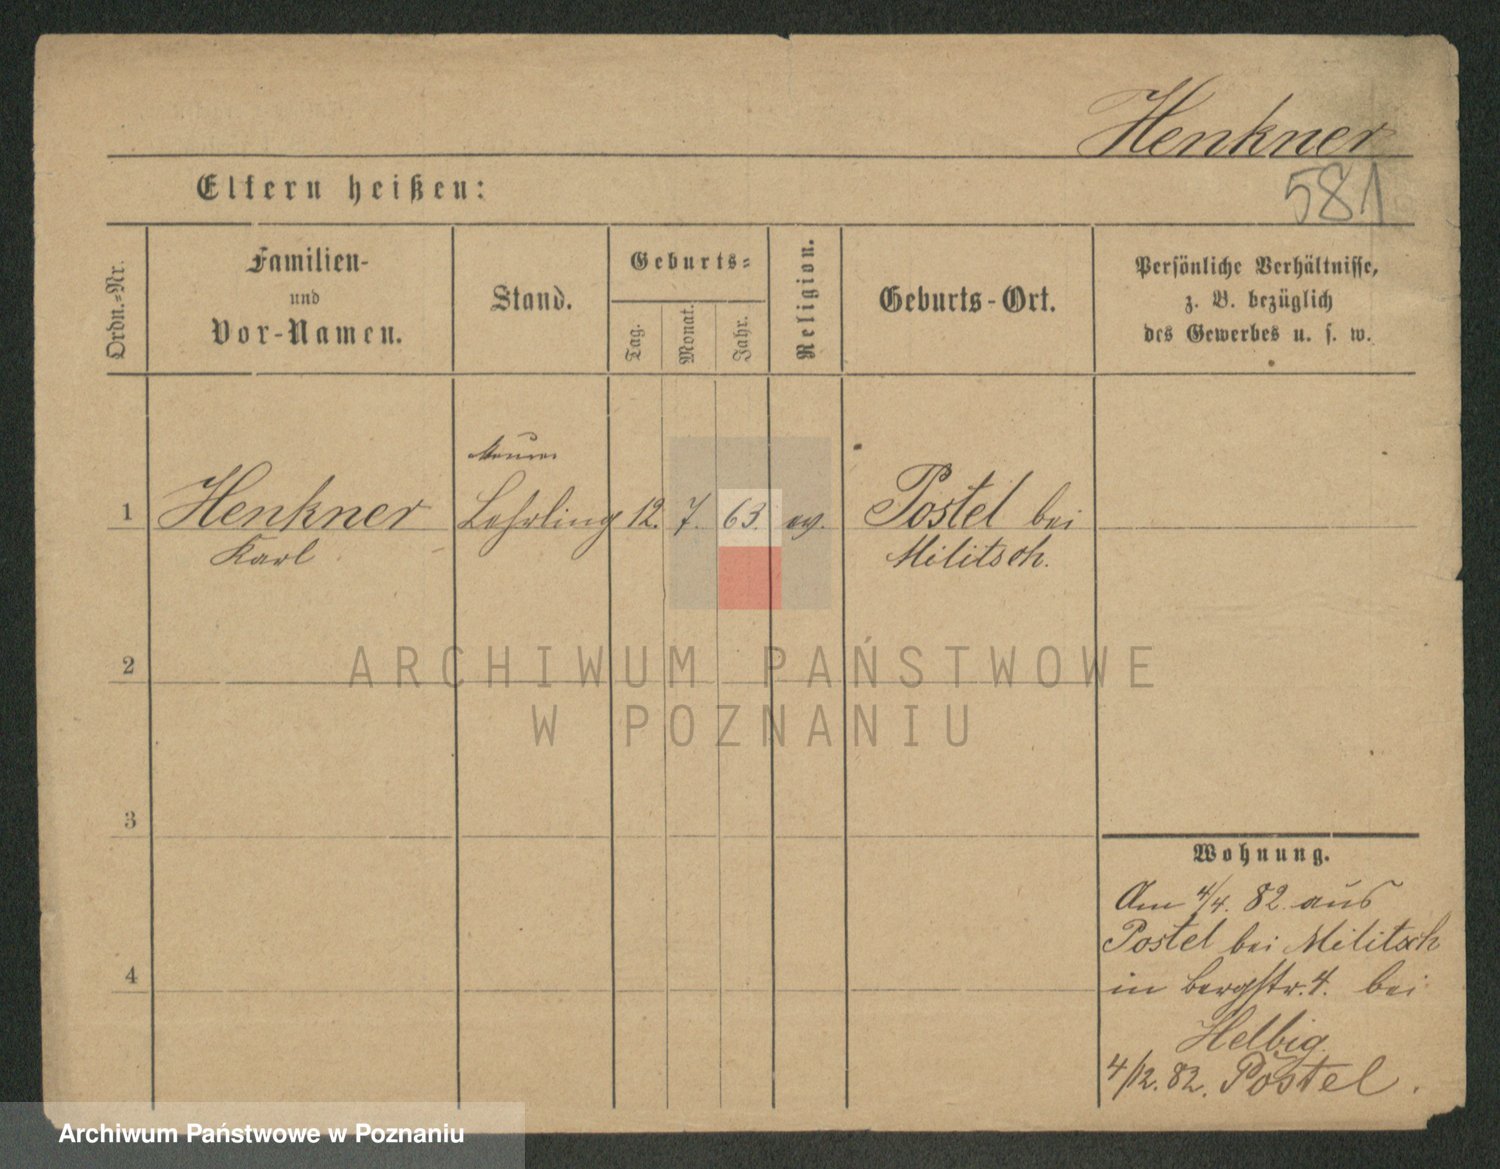 Henkner
581
Eltern heißen:
Ordn.=Nr.
Familien-
und
Vor-Namen.
Stand.
Geburts=
Tag.
Monat.
Jahr.
Religion.
Geburts-Ort.
Persönliche Verhältnisse,
z. B. bezüglich
des Gewerbes u. s. w.
Maurer
1 Henkner Lehrling 12. 7. 63. ev. Postel bei
Karl Militsch.
2
3
4
Wohnung.
Am 4/4. 82 aus
Postel bei Militsch
in Bergstr. 4. bei
Helbig.
4/12. 82. Postel.
ARCHIWUM PAŃSTWOWE
W POZNANIU
Archiwum Państwowe w Poznaniu